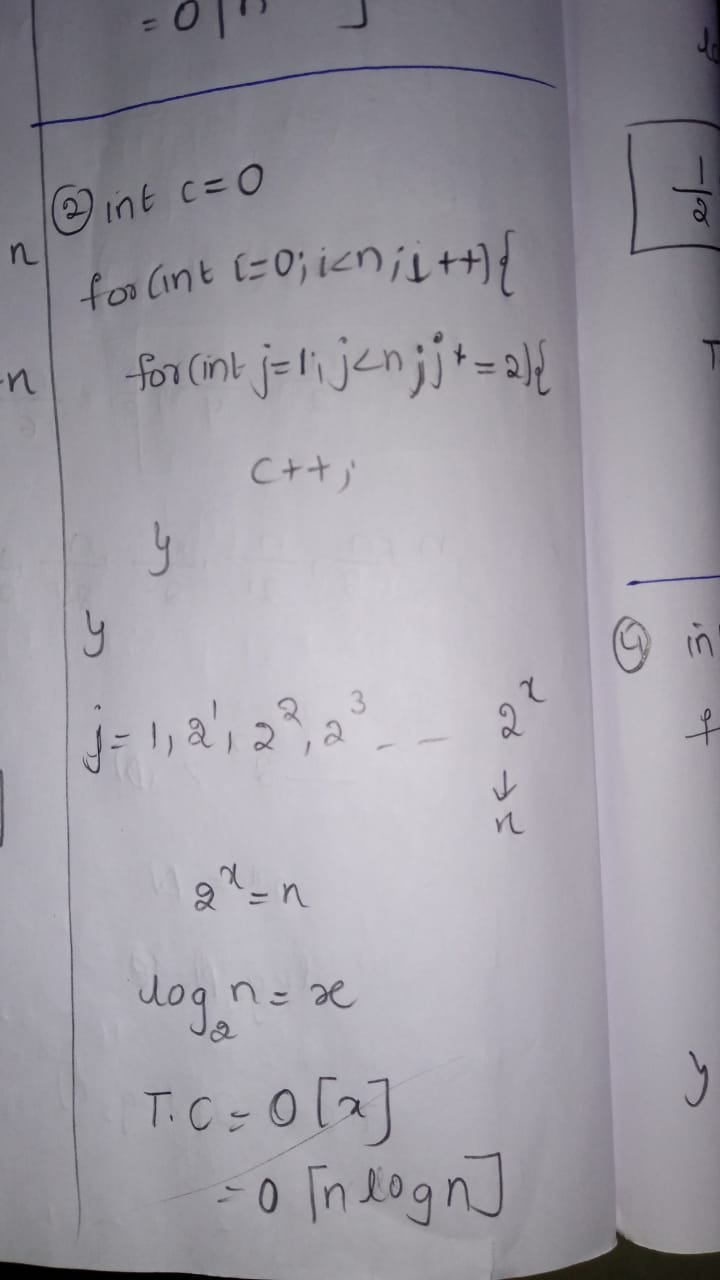 = O[n ]
② int c=0
for(int i=0; i<n; i++){
for(int j=1; j<n; j+=2){
c++;
}
}
j= 1, 2¹, 2², 2³ - - 2ˣ
↓
n
2ˣ = n
log₂n = x
T.C = O[x]
= O[n log n]
n
n
1/2
T
④ in
f
}